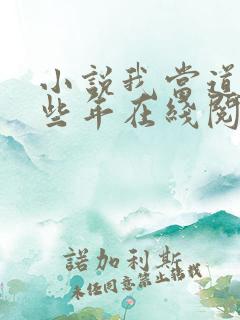 小説我當道
些年在綫閱
諾加利斯
未經同意禁止轉載